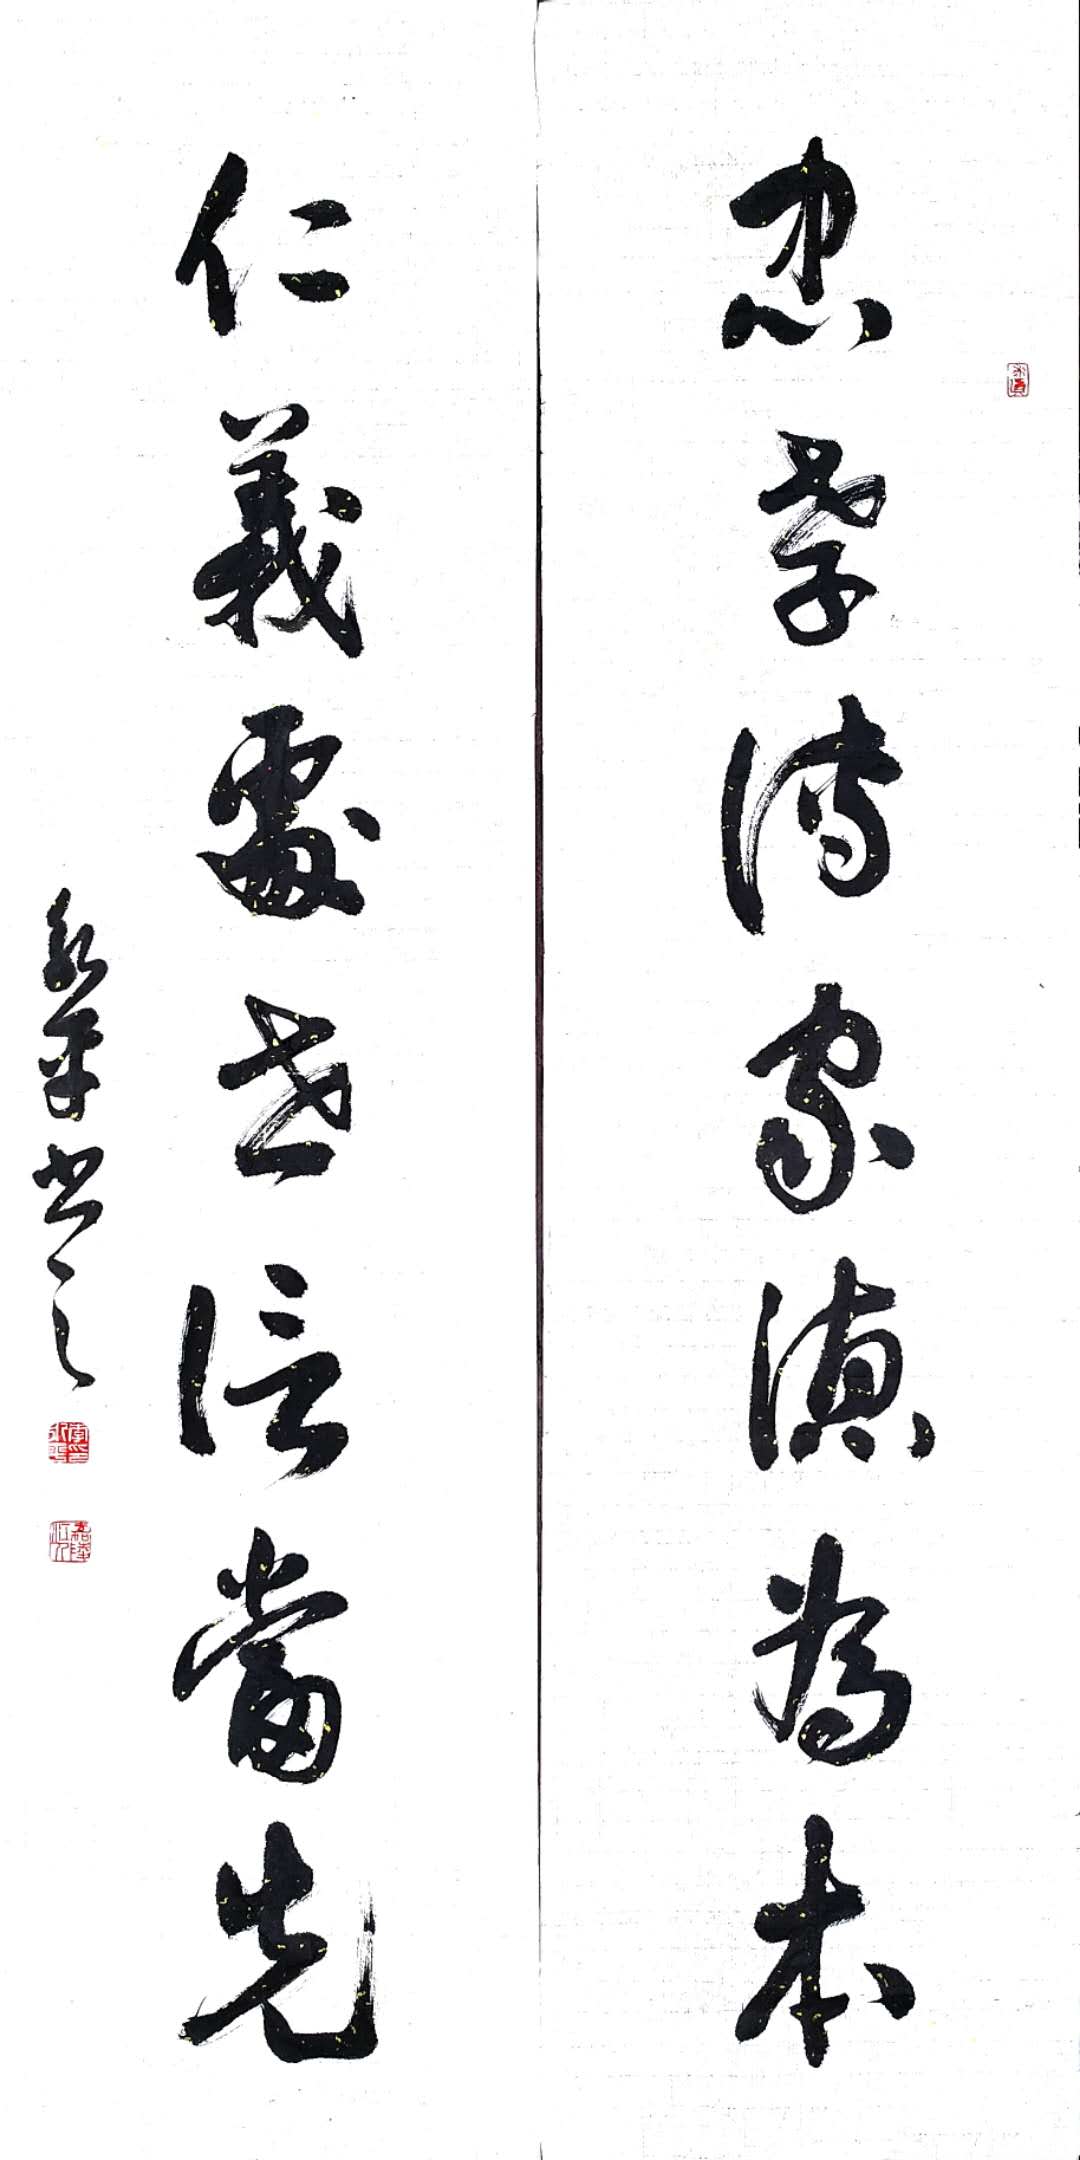 忠孝傳家德為本
仁義處世信當先
永書之